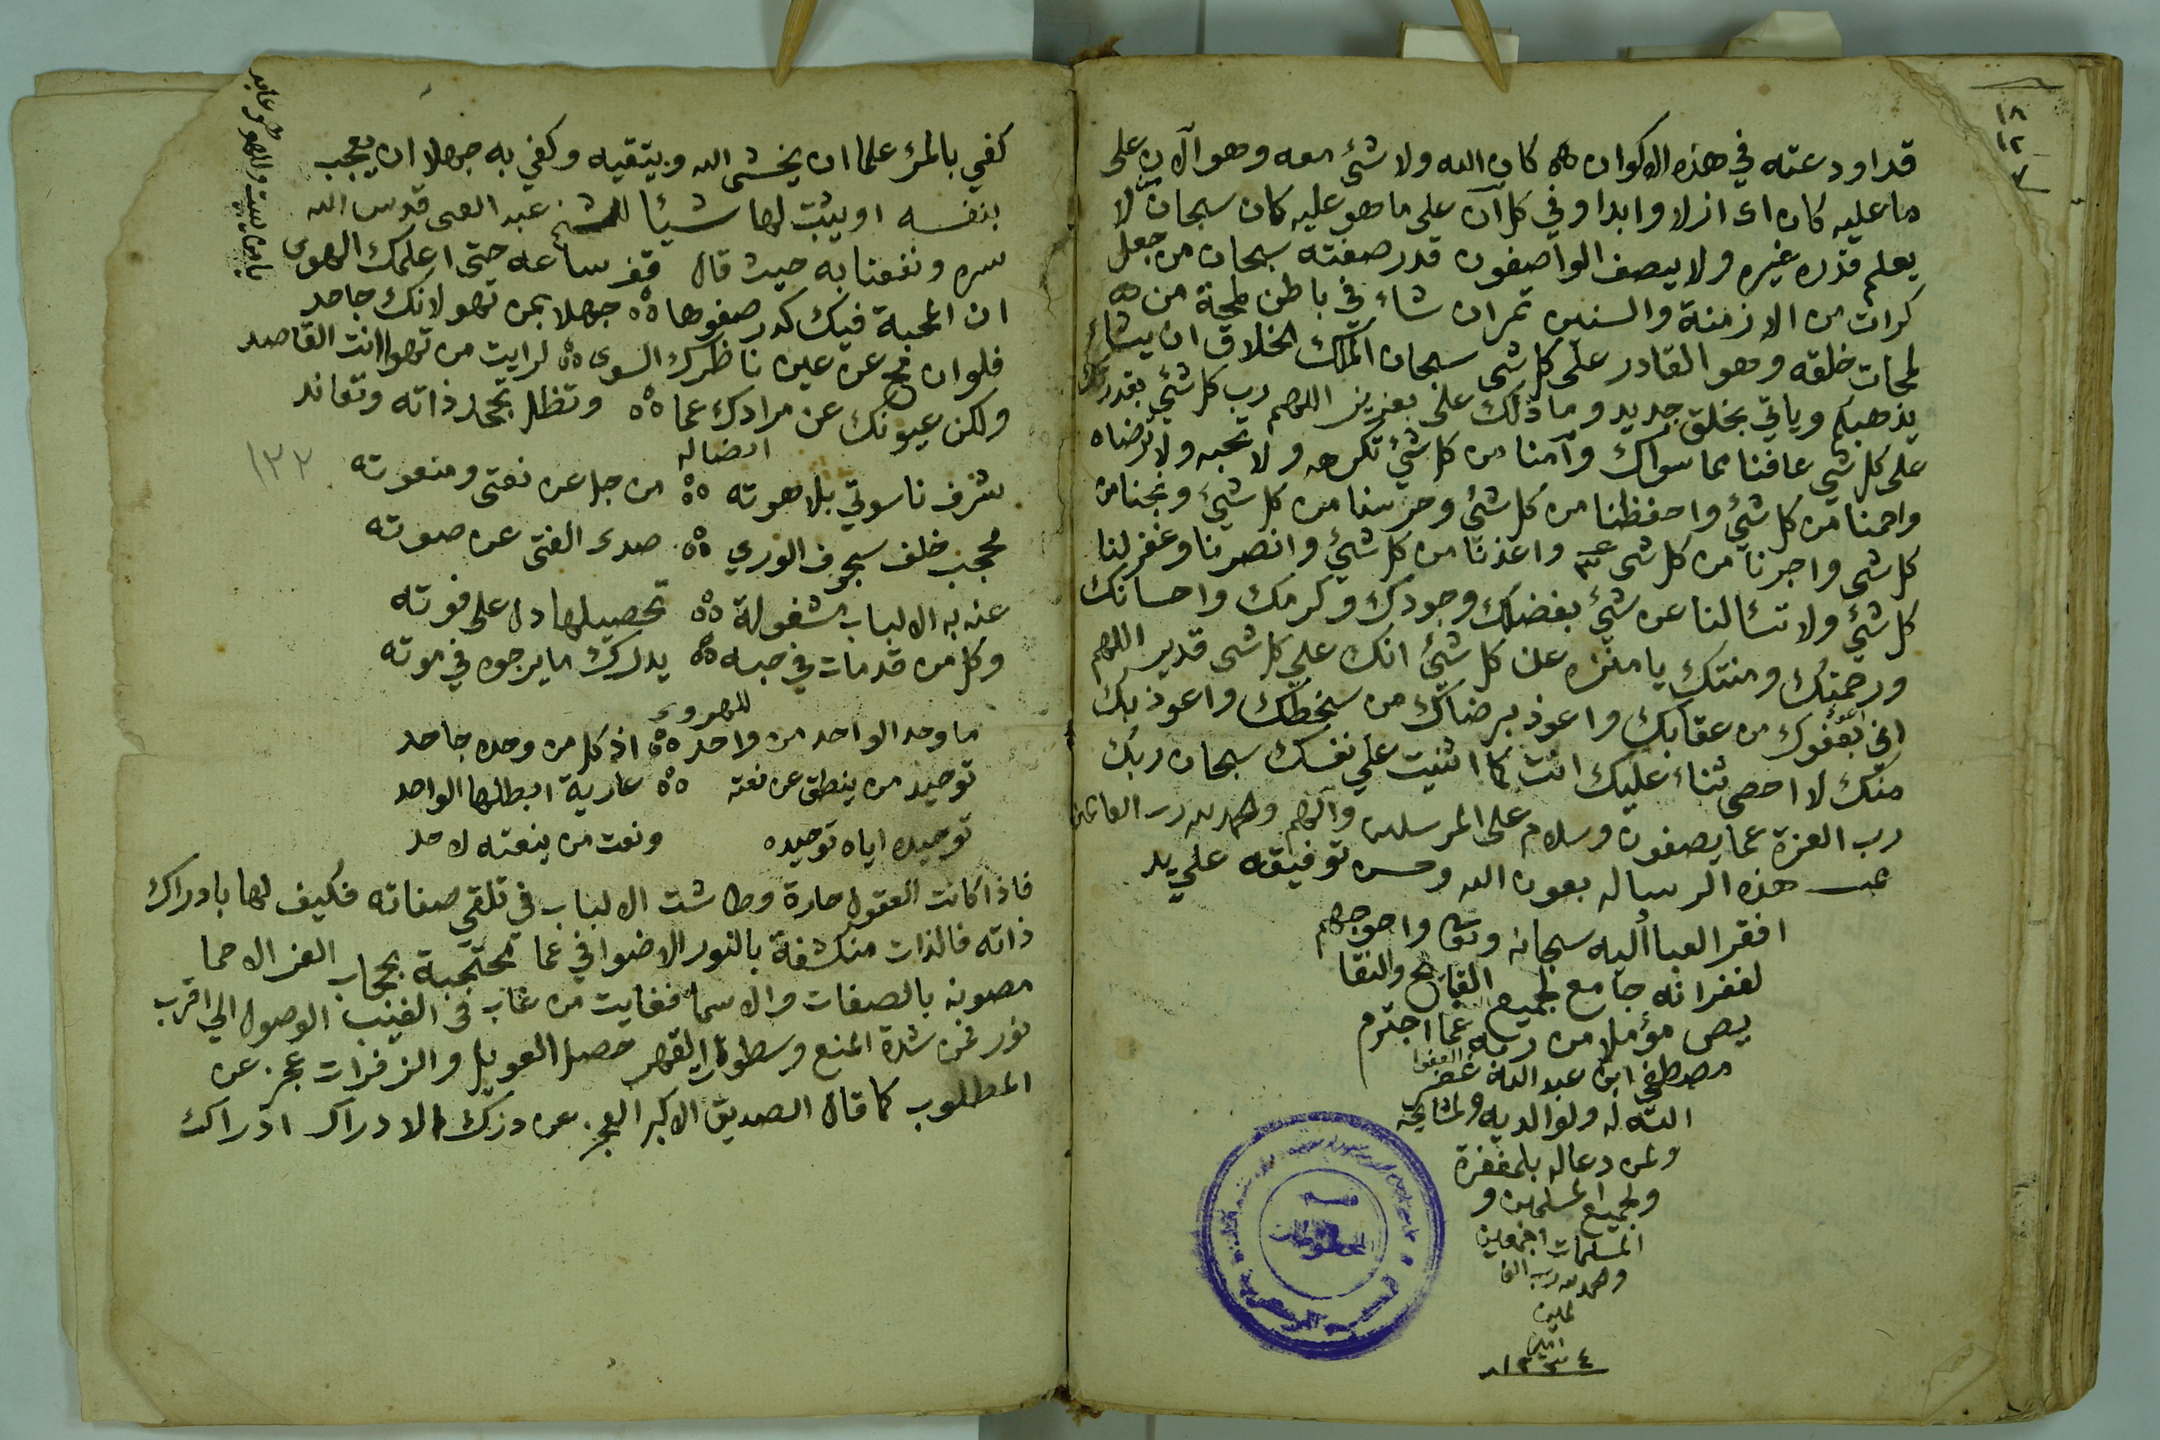 ١٨
١٢
٧
قد اودعته في هذه الاكوان ๑๑ كان الله ولا شئ معه وهو الآن على
ما عليه كان اى ازلا وابدا وفي كل آن على ما هو عليه كان سبحان لا
يعلم قدره غيره ولا يصف الواصفون قدر صفته سبحان من جعل
كرات من الازمنة والسنين تمر ان شاء في باطن لمحة من
لمحات خلقه وهو القادر على كل شى سبحان الملك الخلاق ان يشاء
يذهبكم ويأتي بخلق جديد وما ذلك على بعزيز اللهم رب كل شئ بقدرتك
على كل شي عافنا مما سواك وآمنا من كل شئ تكرهه ولا تحبه ولا ترضاه
واحمنا من كل شئ واحفظنا من كل شئ وحرسنا من كل شئ ونجنا من
كل شى واجرنا من كل شى واعذنا من كل شئ وانصرنا وغفر لنا
كل شئ ولا تسئالنا عن شئ بفضلك وجودك وكرمك واحسانك
ورحمتك ومنتك يا منزه عن كل شئ انك علي كل شى قدير اللهم
اني اعوذ بعفوك من عقابك واعوذ برضاك من سخطك واعوذ بك
منك لا احصى ثناء عليك انت كما اثنيت علي نفسك سبحان ربك
رب العزة عما يصفون وسلام على المرسلين وآلهم والحمد لله رب العالمين
تمت هذه الرساله بعون الله وحسن توفيقه علي يد
افقر العبا اليه سبحانه وتعا واحوجهم
لغفرانه جامع لجميع القبايح والنقا
يص مؤملا من ربه عما اجترم العفوا
مصطفي ابن عبد الله غفر
الله له ولوالديه ولمشايخه
ولمن دعاله بالمغفرة
ولجميع المسلمين و
المسلمات اجمعين
والحمد لله رب العا
لمين
امين
قسم
المخطوطات
كفي بالمرء علما ان يخشى الله ويتقيه وكفي به جهلا ان يعجب
بنفسه او يثبت لها شيئا للشيخ عبد الغنى قدس الله
سره ونفعنا به حيث قال قف ساعه حتى اعلمك الهوى
ان المحبة فيك كدر صفوها ๑๑ جهلا بمن تهو لانك جاحد
فلوان مح عن عين ناظرك السوى ๑๑ لرايت من تهوا انت القاصد
ولكن عيونك عن مرادك عما ๑๑ وتظل تجحد ذاته وتعاند
ايضا له
١٢٢
شرف ناسوتي بلاهوته ๑๑ من جل عن نعتى ومنعوته
محجب خلف سجوف الوري ๑๑ صدى الفتى عن صوته
عنه به الالباب مشغولة ๑๑ تحصيلها دل على فوته
وكل من قد مات في حبه ๑๑ يدرك ما يرجوه في موته
للهروى
ما وحد الواحد من واحد ๑๑ اذ كل من وحده جاحد
توحيد من ينطق عن نعته ๑๑ عارية ابطلها الواحد
توحيده اياه توحيده ونعت من ينعته لاحد
فاذا كانت العقول حارة وطاشت الالباب في تلقي صفاته فكيف لها بادراك
ذاته فالذات منكشفة بالنور الاضوا في عما محتجبة بحجاب العز الاحما
مصونه بالصفات والاسما فغايت من غاب في الغيب الوصول الي اقرب
نور فمن شدة المنع وسطوة القهر حصل العويل والزفرات عجز عن
المطلوب كما قال الصديق الاكبر العجز عن درك الادراك ادراك